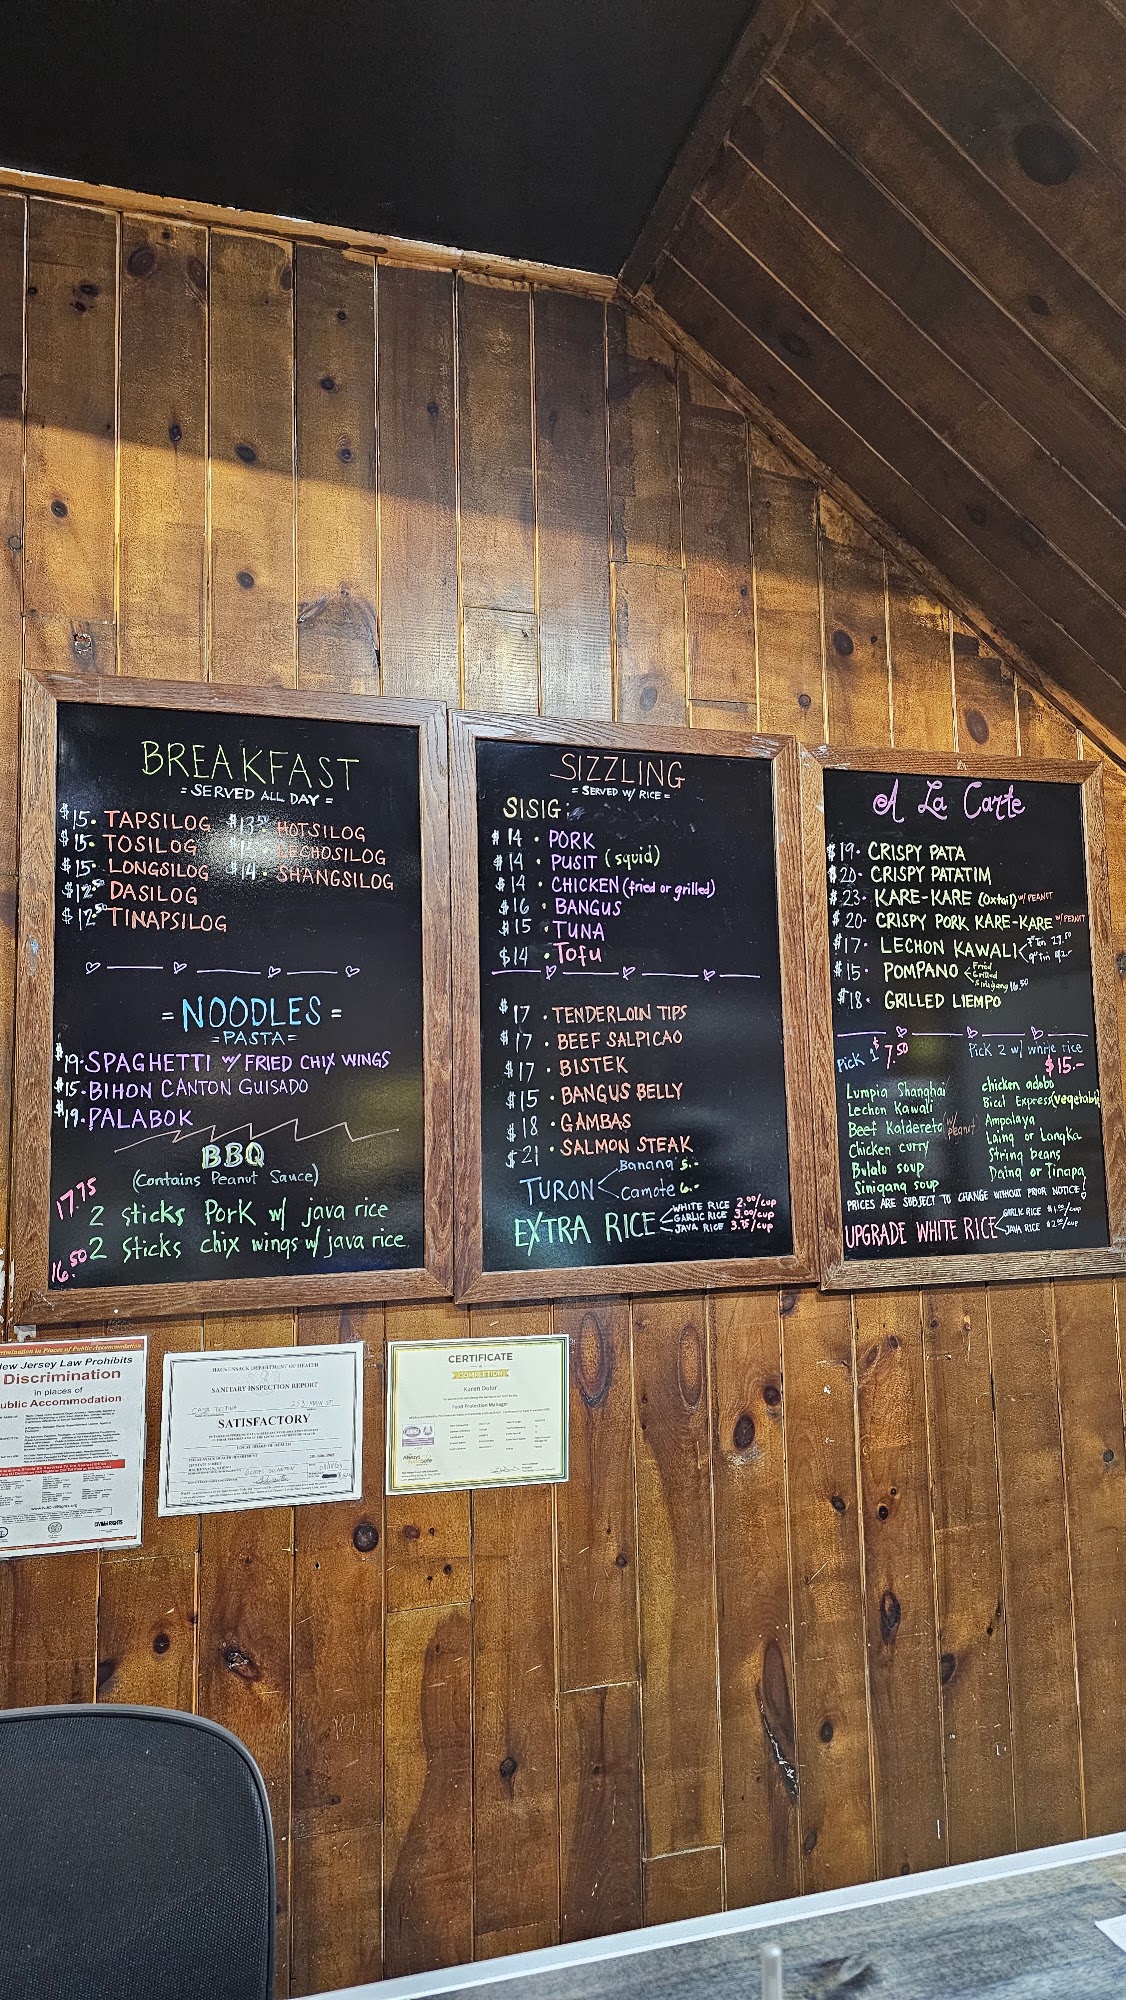 BREAKFAST
= SERVED ALL DAY =
$15. TAPSILOG
$15. TOSILOG
$15. LONGSILOG
$12.50 DASILOG
$12.50 TINAPSILOG
HOTSILOG
LECHOSILOG
$14. SHANGSILOG
= NOODLES =
= PASTA =
$19. SPAGHETTI w/ FRIED CHIX WINGS
$15. BIHON CANTON GUISADO
$19. PALABOK
BBQ
(Contains Peanut Sauce)
17.75 2 sticks Pork w/ java rice
16.50 2 Sticks chix wings w/ java rice
SIZZLING
= SERVED W/ RICE =
SISIG:
$14 . PORK
$14 . PUSIT (squid)
$14 . CHICKEN (fried or grilled)
$16 . BANGUS
$15 . TUNA
$14 . Tofu
$17 . TENDERLOIN TIPS
$17 . BEEF SALPICAO
$17 . BISTEK
$15 . BANGUS BELLY
$18 . GAMBAS
$21 . SALMON STEAK
TURON
Banana 5.-
Camote 6.-
EXTRA RICE
WHITE RICE 2.00/cup
GARLIC RICE 3.00/cup
JAVA RICE 3.75/cup
A La Carte
$19. CRISPY PATA
$20. CRISPY PATATIM
$23. KARE-KARE (Oxtail) w/ PEANUT
$20. CRISPY PORK KARE-KARE w/ PEANUT
$17. LECHON KAWALI
$15. POMPANO
Fried
Grilled
Sinigang 16.50
$18. GRILLED LIEMPO
Pick 1 $7.50
Pick 2 w/ white rice
$15.-
Lumpia Shanghai
Lechon Kawali
Beef Kaldereta w/ peanut
Chicken curry
Bulalo soup
Sinigang soup
chicken adobo
Bicol Express (vegetable
Ampalaya
Laing or Langka
String beans
Daing or Tinapa
PRICES ARE SUBJECT TO CHANGE WITHOUT PRIOR NOTICE!
UPGRADE WHITE RICE
GARLIC RICE $1.00/cup
JAVA RICE $2.00/cup
New Jersey Law Prohibits
Discrimination
in places of
Public Accommodation
HACKENSACK DEPARTMENT OF HEALTH
SANITARY INSPECTION REPORT
253 MAIN ST.
SATISFACTORY
CERTIFICATE
of
COMPLETION
Karen Dolor
Food Protection Manager